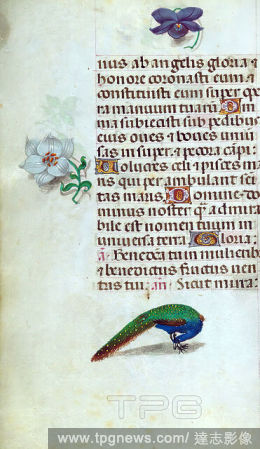 nus ab angelis gloria et
honore coronasti eum et
constituisti eum super ope
ra manuum tuarum Om
nia subiecisti sub pedibus
eius oves et boves univer
sas insuper et pecora campi
Volucres celi et pisces ma
ris qui perambulant semi
tas maris Domine do
minus noster qm admira
bile est nomen tuum in
universa terra Gloria
añ Benedicta tu in mulieribus
et benedictus fructus ven
tris tui añ Sicut mirra
TPG
www.tpgnews.com/ 達志影像